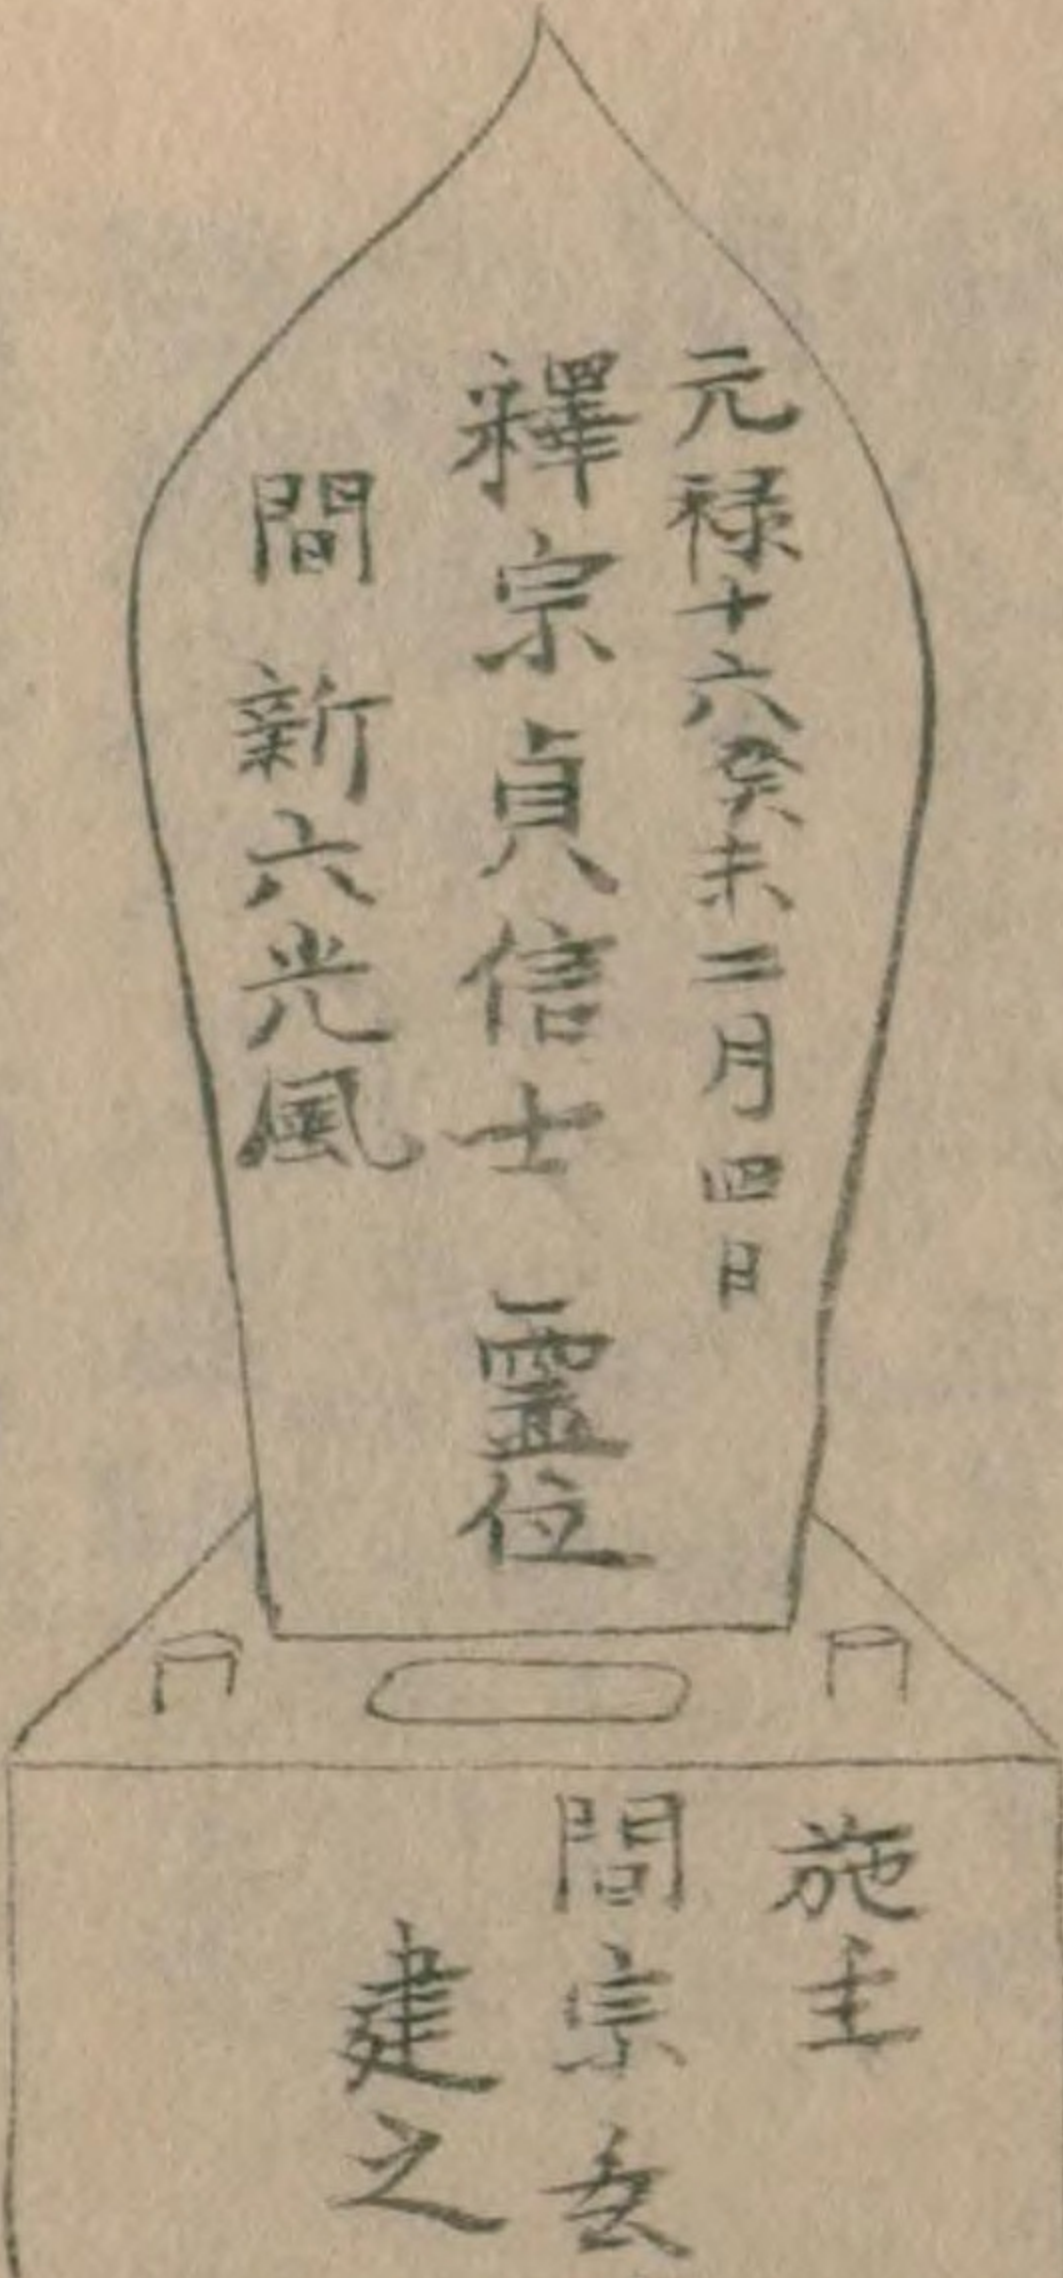 元禄十六癸未二月四日
釋宗貞信士 霊位
間 新六光風
施主
間宗玄
建之